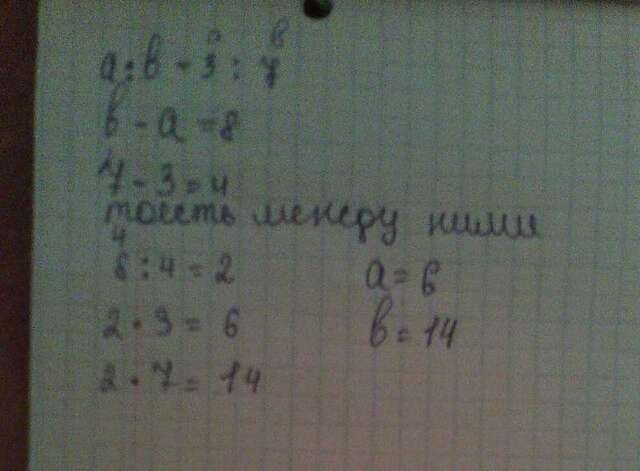 a : b - 3 : 7
b - a = 8
7 - 3 = 4
тоесть между ними
4
8 : 4 = 2
a = 6
2 · 3 = 6
b = 14
2 · 7 = 14